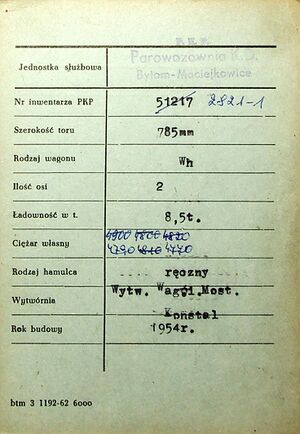 P.K.P.
Jednostka służbowa Parowozownia K.D.
Bytom-Maciejkowice
Nr inwentarza PKP 51217 2821-1
Szerokość toru 785mm
Rodzaj wagonu Wh
Ilość osi 2
Ładowność w t. 8,5t.
4900 4800 4820
Ciężar własny 4790 4810 4770
Rodzaj hamulca ręczny
Wytw. Wagśi.Most.
Wytwórnia
Konstal
Rok budowy 1954r.
btm 3 1192-62 6000